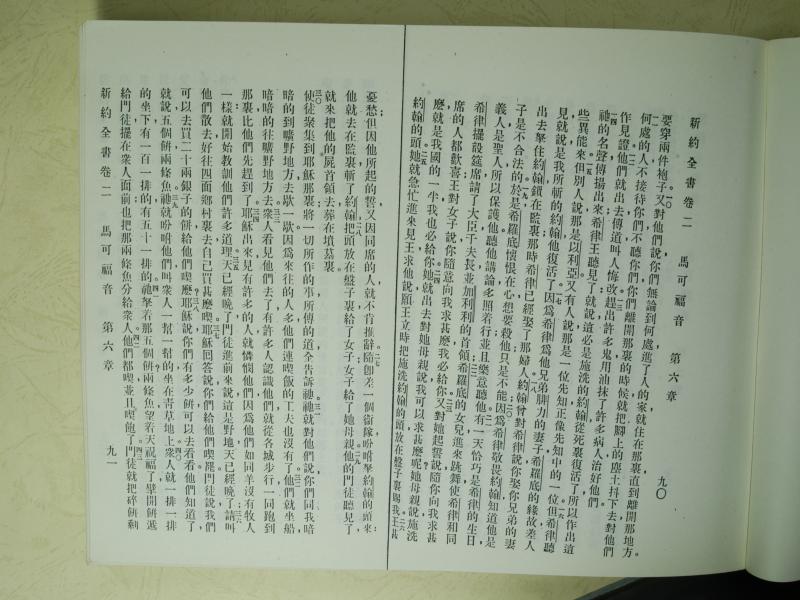 新約全書卷二 馬可福音 第六章 九〇
要穿兩件袍子又對他們說你們無論到何處進了人的家就住在那裏直到離開那地方
何處的人不接待你們不聽你們你們離開那裏的時候就把脚上的塵土抖下去對他們
作見證他們就出去傳道叫人悔改趕出許多鬼用油抹了許多病人治好他們
祂的名聲傳揚出來希律王聽見了就說這必是施洗的約翰從死裏復活了所以作出這
些異能來但別人說那是以利亞又有人說那是一位先知正像先知中的一位但希律聽
見就說是我所斬的約翰他復活了因爲希律爲他兄弟腓力的妻子希羅底的緣故差人
出去拏住約翰鎖在監裏那時希律已經娶了那婦人約翰曾對希律說你娶你兄弟的妻
子是不合法的於是希羅底懷恨在心想要殺他只是不能因爲希律敬畏約翰知道他是
義人是聖人所以保護他聽他講論多照着行並且樂意聽他有一天恰巧是希律的生日
希律擺設筵席請了大臣千夫長並加利利的首領希羅底的女兒進來跳舞使希律和同
席的人都歡喜王對女子說你隨意向我求甚麽我必給你又對她起誓說隨你向我求甚
麽就是我國的一半我也必給你她就出去對她母親說我可以求甚麽呢她母親說施洗
約翰的頭她就急忙進來見王求他說願王立時把施洗約翰的頭放在盤子裏賜我王甚
憂愁但因他所起的誓又因同席的人就不肯推辭隨卽差一個衛隊吩咐拏約翰的頭來
他就去在監裏斬了約翰把頭放在盤子裏給了女子女子給了她母親他的門徒聽見了
就來把他的屍首領去葬在墳墓裏
使徒聚集到耶穌那裏將一切所作的事所傳的道全告訴祂祂就對他們說你們同我暗
暗的到曠野地方去歇一歇因爲來往的人多他們連喫飯的工夫也沒有了他們就坐船
暗暗的往曠野地方去衆人看見他們去了有許多人認識他們就從各城步行一同跑到
那裏比他們先趕到了耶穌出來見有許多的人就憐憫他們因爲他們如同羊沒有牧人
一樣就開始教訓他們許多道理天已經晚了門徒進前來說這是野地天已經晚了請叫
他們散去好往四面鄉村裏去自己買甚麽喫耶穌回答說你們給他們喫罷門徒說我們
可以去買二十兩銀子的餅給他們喫麽耶穌說你們有多少餅可以去看看他們知道了
就說五個餅兩條魚祂就吩咐他們叫衆人一幫一幫的坐在青草地上衆人就一排一排
的坐下有一百一排的有五十一排的祂拏着那五個餅兩條魚望着天祝福了擘開餅遞
給門徒擺在衆人面前也把那兩條魚分給衆人他們都喫並且喫飽了門徒就把碎餅剩
新約全書卷二 馬可福音 第六章 九一